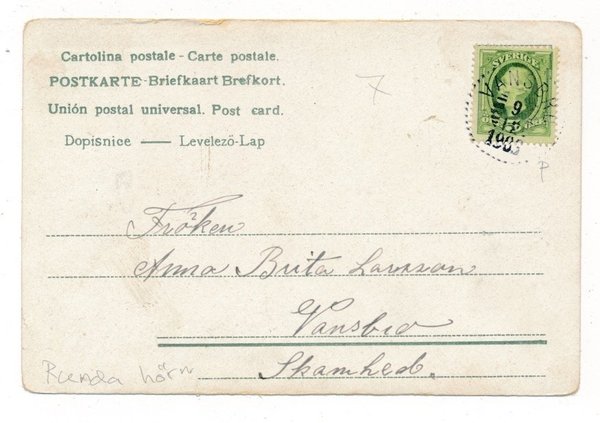 Cartolina postale - Carte postale.
POSTKARTE - Briefkaart Brefkort.
Unión postal universal. Post card.
Dopisnice — Levelező-Lap
7
SVERIGE
VANSBRO
9
12
1903
P
Fröken
Anna Brita Larsson
Vansbro
Skamhed.
Runda hörn